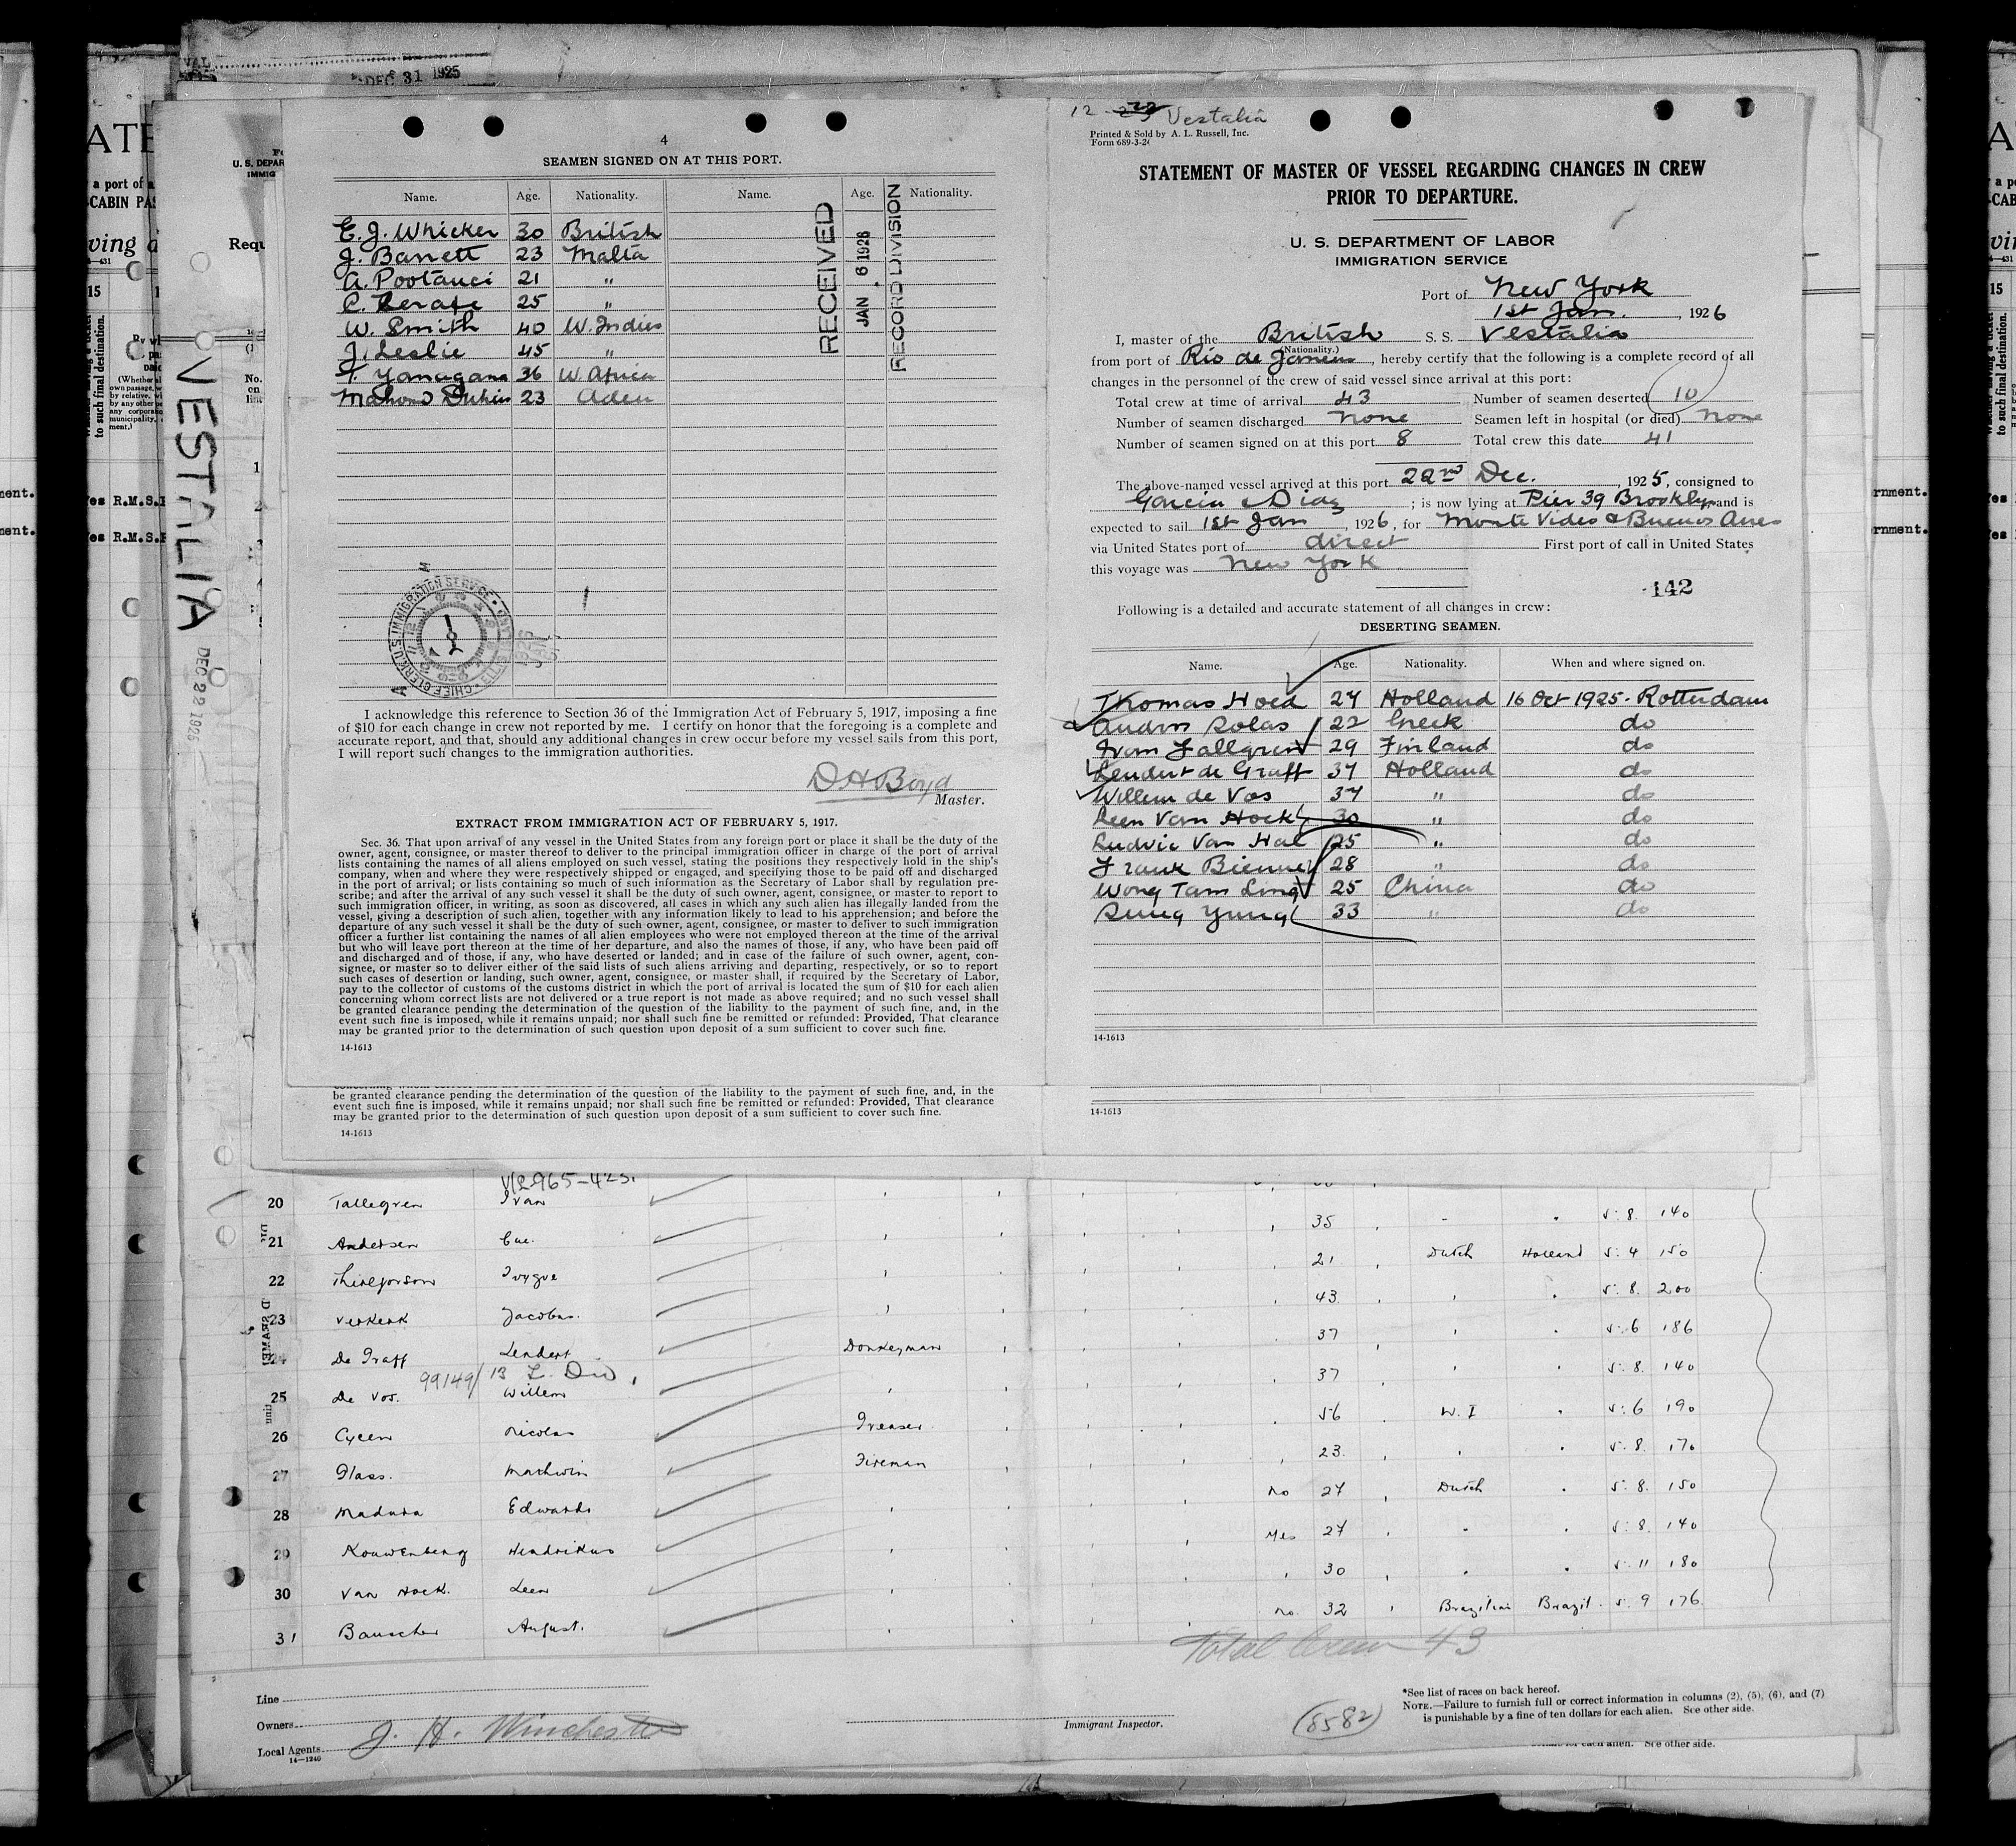 DEC 31 1925
4
SEAMEN SIGNED ON AT THIS PORT.
Name. Age. Nationality. Name. Age. Nationality.
E. J. Whicker 30 British
J. Barrett 23 Malta
A. Pootauci 21 "
C. 25 "
W. Smith 40 W. Indies
J. Leslie 45 "
T. Yamagana 36 W. Africa
23 Aden
RECEIVED
JAN. 6 1926
RECORD DIVISION
I acknowledge this reference to Section 36 of the Immigration Act of February 5, 1917, imposing a fine
of $10 for each change in crew not reported by me. I certify on honor that the foregoing is a complete and
accurate report, and that, should any additional changes in crew occur before my vessel sails from this port,
I will report such changes to the immigration authorities.
D H Boyd
Master.
EXTRACT FROM IMMIGRATION ACT OF FEBRUARY 5, 1917.
Sec. 36. That upon arrival of any vessel in the United States from any foreign port or place it shall be the duty of the
owner, agent, consignee, or master thereof to deliver to the principal immigration officer in charge of the port of arrival
lists containing the names of all aliens employed on such vessel, stating the positions they respectively hold in the ship's
company, when and where they were respectively shipped or engaged, and specifying those to be paid off and discharged
in the port of arrival; or lists containing so much of such information as the Secretary of Labor shall by regulation pre-
scribe; and after the arrival of any such vessel it shall be the duty of such owner, agent, consignee, or master to report to
such immigration officer, in writing, as soon as discovered, all cases in which any such alien has illegally landed from the
vessel, giving a description of such alien, together with any information likely to lead to his apprehension; and before the
departure of any such vessel it shall be the duty of such owner, agent, consignee, or master to deliver to such immigration
officer a further list containing the names of all alien employees who were not employed thereon at the time of the arrival
but who will leave port thereon at the time of her departure, and also the names of those, if any, who have been paid off
and discharged and of those, if any, who have deserted or landed; and in case of the failure of such owner, agent, con-
signee, or master so to deliver either of the said lists of such aliens arriving and departing, respectively, or so to report
such cases of desertion or landing, such owner, agent, consignee, or master shall, if required by the Secretary of Labor,
pay to the collector of customs of the customs district in which the port of arrival is located the sum of $10 for each alien
concerning whom correct lists are not delivered or a true report is not made as above required; and no such vessel shall
be granted clearance pending the determination of the question of the liability to the payment of such fine, and, in the
event such fine is imposed, while it remains unpaid; nor shall such fine be remitted or refunded: Provided, That clearance
may be granted prior to the determination of such question upon deposit of a sum sufficient to cover such fine.
14-1613
be granted clearance pending the determination of the question of the liability to the payment of such fine, and, in the
event such fine is imposed, while it remains unpaid; nor shall such fine be remitted or refunded: Provided, That clearance
may be granted prior to the determination of such question upon deposit of a sum sufficient to cover such fine.
14-1613
VESTALIA
DEC 22 1925
12 - Vestalia
Printed & Sold by A. L. Russell, Inc.
Form 689-3-24
STATEMENT OF MASTER OF VESSEL REGARDING CHANGES IN CREW
PRIOR TO DEPARTURE.
U. S. DEPARTMENT OF LABOR
IMMIGRATION SERVICE
Port of New York
1st Jan., 1926
I, master of the British S. S. Vestalia
(Nationality.)
from port of Rio de Janeiro, hereby certify that the following is a complete record of all
changes in the personnel of the crew of said vessel since arrival at this port:
Total crew at time of arrival 43 Number of seamen deserted 10
Number of seamen discharged None Seamen left in hospital (or died) None
Number of seamen signed on at this port 8 Total crew this date 41
The above-named vessel arrived at this port 22nd Dec., 1925, consigned to
Garcia & Diaz; is now lying at Pier 39 Brooklyn and is
expected to sail 1st Jan, 1926, for Monte Video & Buenos Aires
via United States port of direct First port of call in United States
this voyage was New York
142
Following is a detailed and accurate statement of all changes in crew:
DESERTING SEAMEN.
Name. Age. Nationality. When and where signed on.
Thomas Hoed 27 Holland 16 Oct 1925. Rotterdam
Andros Solas 22 Greek do
Ivan Tallgren 29 Finland do
Lendert de Graff 37 Holland do
Willem de Vos 37 " do
Leen Van Hock 30 " do
Ludvic Van Hal 25 " do
Frank Bienne 28 " do
Wong Tam Ling 25 China do
Sung Yung 33 " do
14-1613
14-1613
20 Tallegren Ivan
35 5. 8. 140
21 Andersen
21 Dutch Holland 5. 4 150
22
43 5. 8. 200
23 Verkerk Jacobus.
37 5. 6 186
24 De Graff Lendert Donkeyman
37 5. 8. 140
99149/13
25 De Vos. Willem
56 W. I 5. 6 190
26 Nicolas Greaser
23 5. 8. 170
27 Glass. Fireman
no 27 Dutch 5. 8. 150
28 Madura Edwardo
yes 27 5. 8. 140
29 Kouwenberg Hendrikus
30 5. 11 180
30 Van Hoek. Leen
no. 32 Brazilian Brazil. 5. 9 176
31 Bauscher August.
Total Crew 43
Line
Owners
J. H. Winchester
Local Agents
14-1240
Immigrant Inspector.
(8582)
*See list of races on back hereof.
NOTE.—Failure to furnish full or correct information in columns (2), (5), (6), and (7)
is punishable by a fine of ten dollars for each alien. See other side.